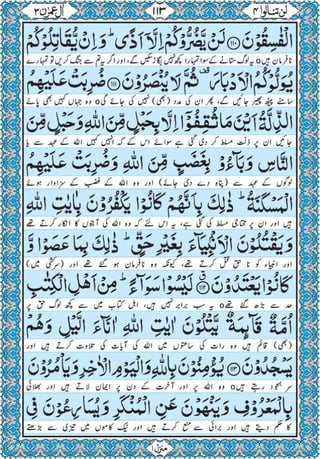 لن تنالوا ٤
١١٣
اٰل عمرٰن ٣
الْفٰسِقُوْنَ ﴿١١٠﴾ لَنْ يَّضُرُّوْكُمْ اِلَّاۤ اَذًى ؕ وَاِنْ يُّقَاتِلُوْكُمْ
نافرمان ہیں o یہ لوگ ستانے کے سوا تمہارا کچھ نہیں بگاڑ سکیں گے، اور اگر یہ تم سے جنگ کریں تو تمہارے
يُوَلُّوْكُمُ الْاَدْبَارَ ۫ ثُمَّ لَا يُنْصَرُوْنَ ﴿١١١﴾ ضُرِبَتْ عَلَيْهِمُ
سامنے پیٹھ پھیر جائیں گے، پھر ان کی مدد (بھی) نہیں کی جائے گی o وہ جہاں کہیں بھی پائے
الذِّلَّةُ اَيْنَ مَا ثُقِفُوْۤا اِلَّا بِحَبْلٍ مِّنَ اللّٰهِ وَحَبْلٍ مِّنَ
جائیں ان پر ذلت مسلط کر دی گئی ہے سوائے اس کے کہ انہیں کہیں اللہ کے عہد سے یا
النَّاسِ وَبَآءُوْ بِغَضَبٍ مِّنَ اللّٰهِ وَضُرِبَتْ عَلَيْهِمُ
لوگوں کے عہد سے (پناہ دے دی جائے) اور وہ اللہ کے غضب کے سزاوار ہوئے
الْمَسْكَنَةُ ؕ ذٰلِكَ بِاَنَّهُمْ كَانُوْا يَكْفُرُوْنَ بِاٰيٰتِ اللّٰهِ
ہیں اور ان پر محتاجی مسلط کی گئی ہے، یہ اس لئے کہ وہ اللہ کی آیتوں کا انکار کرتے تھے
وَيَقْتُلُوْنَ الْاَنْۢبِيَآءَ بِغَيْرِ حَقٍّ ؕ ذٰلِكَ بِمَا عَصَوْا وَّ
اور انبیاء کو ناحق قتل کرتے تھے، کیونکہ وہ نافرمان ہو گئے تھے اور (سرکشی میں)
كَانُوْا يَعْتَدُوْنَ ﴿١١٢﴾ لَيْسُوْا سَوَآءً ؕ مِنْ اَهْلِ الْكِتٰبِ
حد سے بڑھ گئے تھے o یہ سب برابر نہیں ہیں، اہل کتاب میں سے کچھ لوگ حق پر
اُمَّةٌ قَآئِمَةٌ يَّتْلُوْنَ اٰيٰتِ اللّٰهِ اٰنَآءَ الَّيْلِ وَهُمْ
(بھی) قائم ہیں وہ رات کی ساعتوں میں اللہ کی آیات کی تلاوت کرتے ہیں اور
يَسْجُدُوْنَ ﴿١١٣﴾ يُؤْمِنُوْنَ بِاللّٰهِ وَالْيَوْمِ الْاٰخِرِ وَيَاْمُرُوْنَ
سر بسجود رہتے ہیں o وہ اللہ پر اور آخرت کے دن پر ایمان لاتے ہیں اور بھلائی
بِالْمَعْرُوْفِ وَيَنْهَوْنَ عَنِ الْمُنْكَرِ وَيُسَارِعُوْنَ فِى
کا حکم دیتے ہیں اور برائی سے منع کرتے ہیں اور نیک کاموں میں تیزی سے بڑھتے
منزل ١